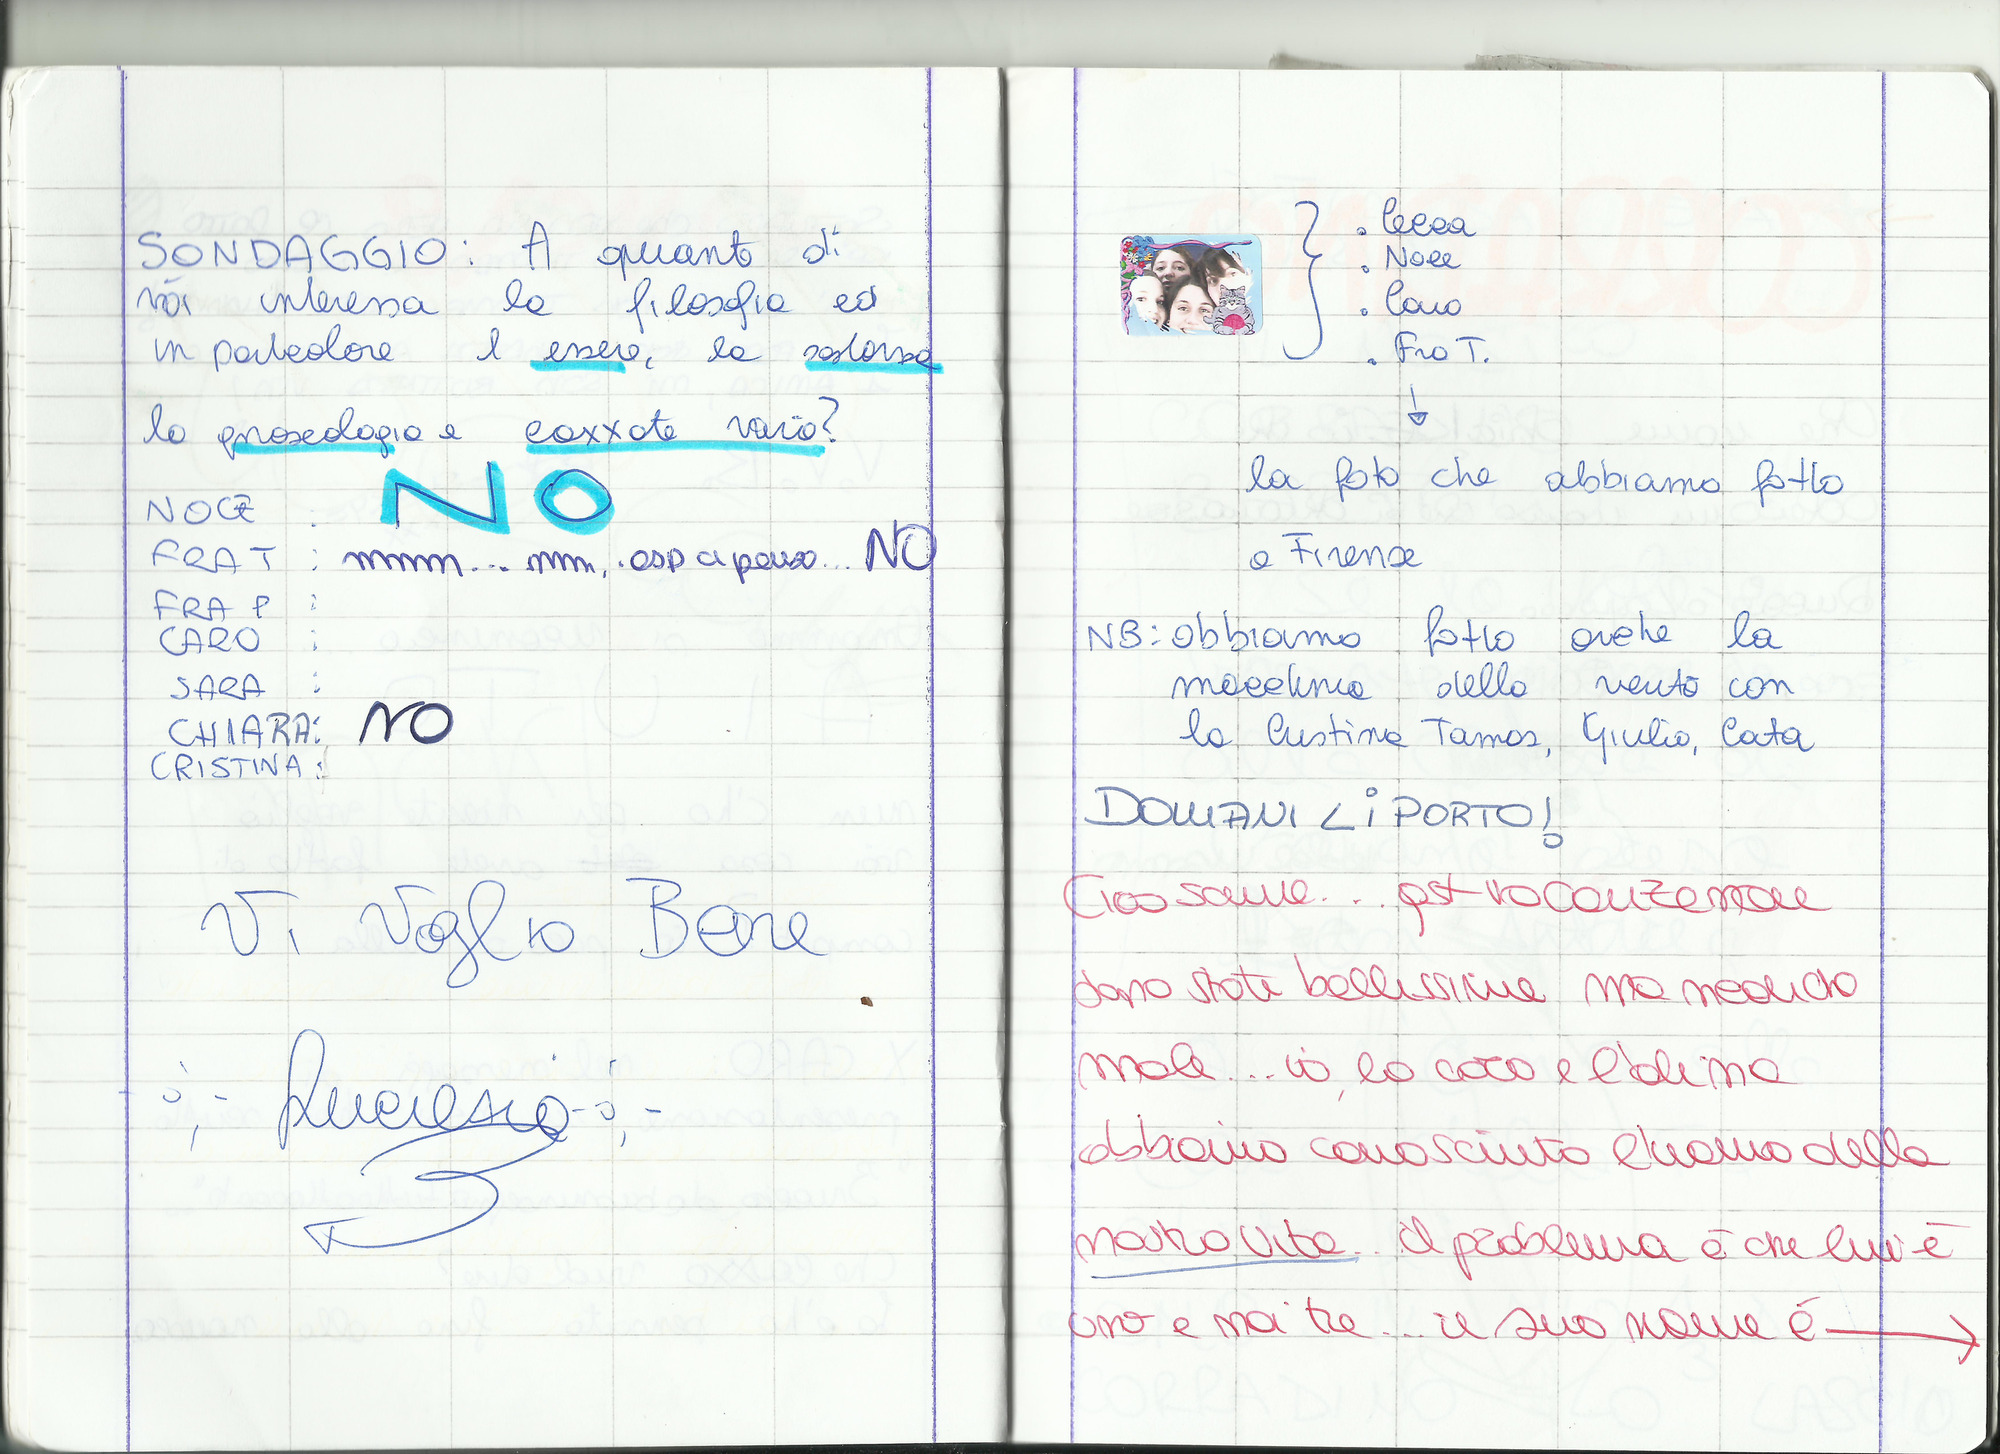 SONDAGGIO: A quanti di
voi interessa la filosofia ed
in particolare l essere, la sostanza
la gnoseologia e cazzate varie?
NOCE : NO
FRA T : mmm... mm... asp ci penso... NO
FRA P :
CARO :
SARA :
CHIARA: NO
CRISTINA:
Vi Voglio Bene
Lucrezia
. Cecca
. Noce
. Caro
. Fra T.
la foto che abbiamo fatto
a Firenze
NB: abbiamo fatto anche la
macchina della verità con
la Cristina Tamos, Giulia, Cata
DOMANI LI PORTO!
Ciao sceme... qst vacanze
sono state bellissime ma
male... io, la caro e l'
abbiamo conosciuto l'uomo della
nostra vita... il problema è che lui è
uno e noi tre... il suo nome è